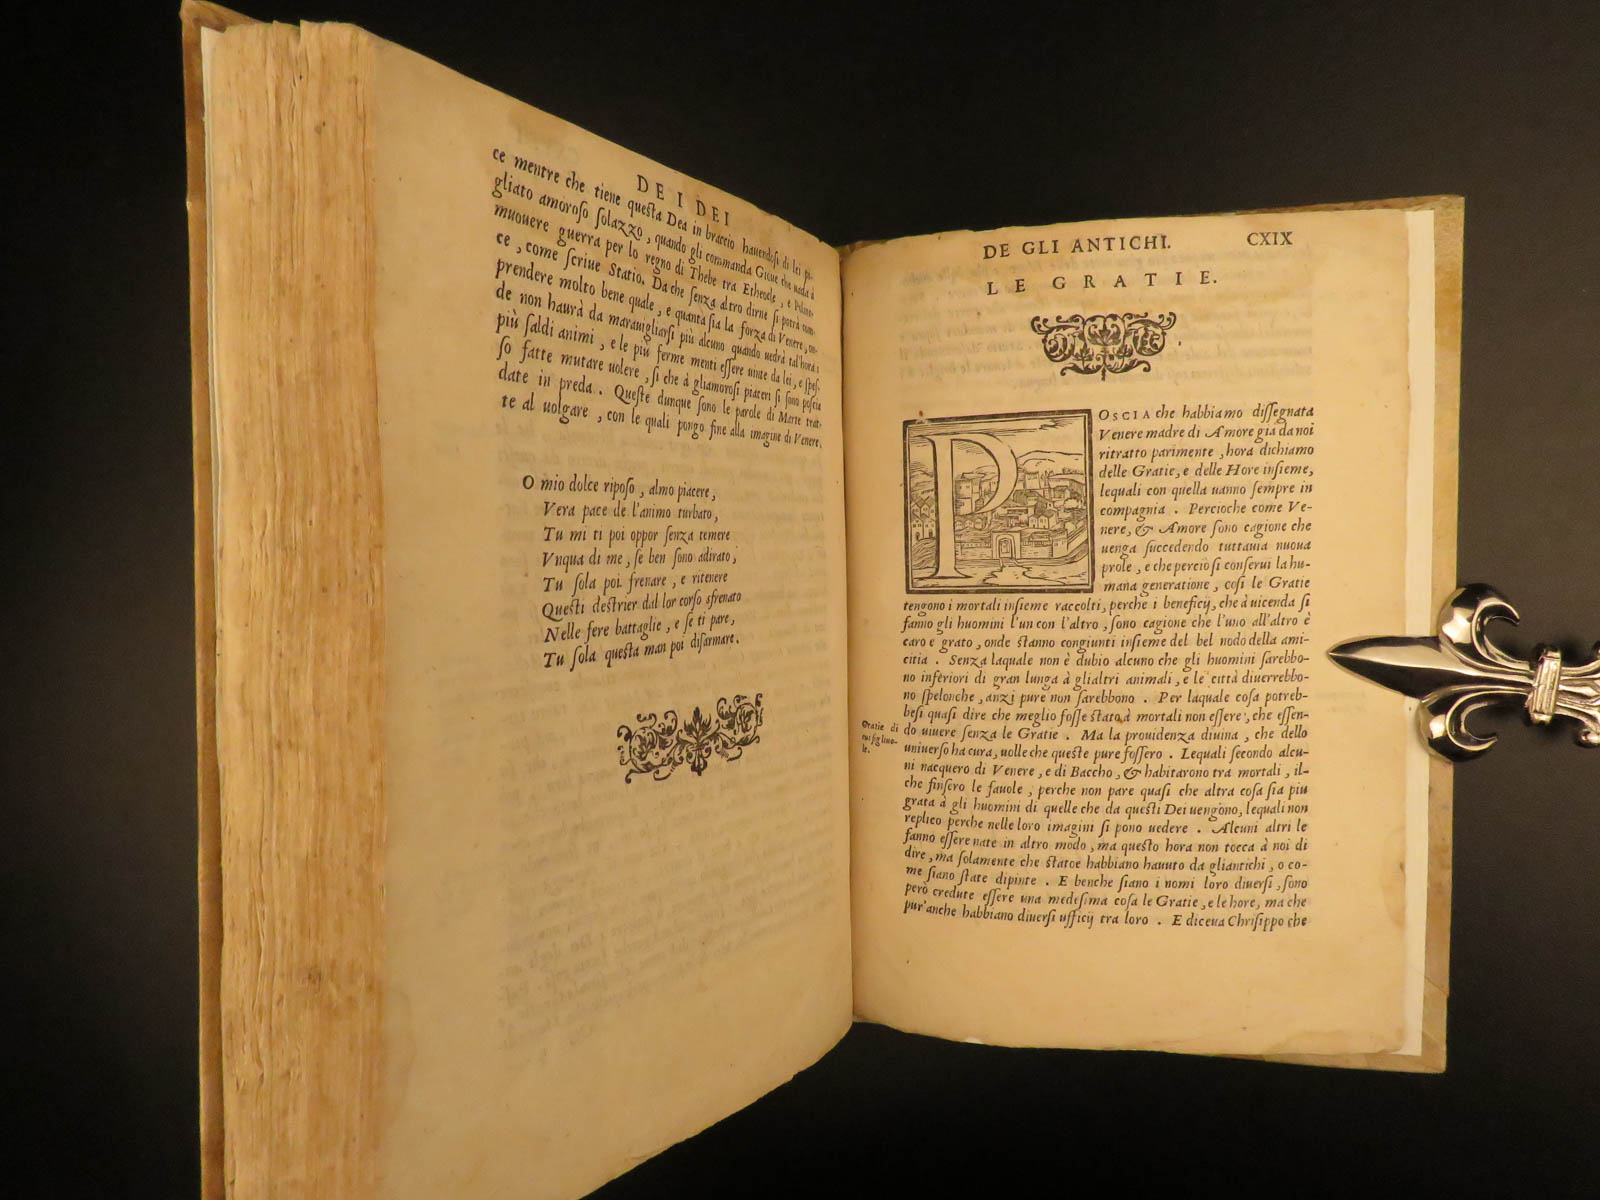 DE I DEI
ce mentre che tiene questa Dea in braccio hauendosi di lei pi-
gliato amoroso solazzo, quando gli commanda Gioue che uada à
muouere guerra per lo regno di Thebe tra Etheocle, e Polinice,
ce, come scriue Statio. Da che senza altro dirne si potrà com-
prendere molto bene quale, e quanta sia la forza di Venere, on-
de non haurà da marauigliarsi più alcuno quando uedrà tal'hora i
più saldi animi, e le più ferme menti essere uinte da lei, e spes-
so fatte mutare uolere, si che à gliamorosi piaceri si sono poscia
date in preda. Queste dunque sono le parole di Marte trat-
te al uolgare, con le quali pongo fine alla imagine di Venere.
O mio dolce riposo, almo piacere,
Vera pace de l'animo turbato,
Tu mi ti poi oppor senza temere
Vnqua di me, se ben sono adirato;
Tu sola poi frenare, e ritenere
Questi destrier dal lor corso sfrenato
Nelle fere battaglie, e se ti pare,
Tu sola questa man poi disarmare.
DE GLI ANTICHI. CXIX
LE GRATIE.
POSCIA che habbiamo dissegnata
Venere madre di Amore gia da noi
ritratto parimente, hora dichiamo
delle Gratie, e delle Hore insieme,
lequali con quella uanno sempre in
compagnia. Percioche come Ve-
nere, & Amore sono cagione che
uenga succedendo tuttauia nuoua
prole, e che perciò si conserui la hu-
mana generatione, cosi le Gratie
tengono i mortali insieme raccolti, perche i beneficij, che à uicenda si
fanno gli huomini l'un con l'altro, sono cagione che l'uno all'altro è
caro e grato, onde stanno congiunti insieme del bel nodo della ami-
citia. Senza laquale non è dubio alcuno che gli huomini sarebbo-
no inferiori di gran lunga à glialtri animali, e le città diuerrebbo-
no spelonche, anzi pure non sarebbono. Per laquale cosa potreb-
besi quasi dire che meglio fosse stato à mortali non essere, che essen-
Gratie di
cui figliuo-
le.
do uiuere senza le Gratie. Ma la prouidenza diuina, che dello
uniuerso ha cura, uolle che queste pure fossero. Lequali secondo alcu-
ni nacquero di Venere, e di Baccho, & habitarono tra mortali, il-
che finsero le fauole, perche non pare quasi che altra cosa sia piu
grata à gli huomini di quelle che da questi Dei uengono, lequali non
replico perche nelle loro imagini si pono uedere. Alcuni altri le
fanno essere nate in altro modo, ma questo hora non tocca à noi di
dire, ma solamente che statoe habbiano hauuto da gliantichi, o co-
me siano state dipinte. E benche siano i nomi loro diuersi, sono
però credute essere una medesima cosa le Gratie, e le hore, ma che
pur'anche habbiano diuersi ufficij tra loro. E diceua Chrisippo che